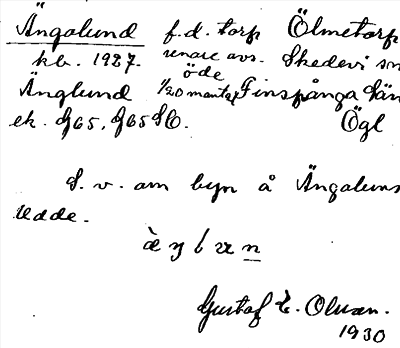 Ängalund f.d. torp Ölmetorp
kb. 1927. renare avs. Skedevi sn
öde
Änglund 1/20 mantal Finspånga län
ek. G65, G65 SO. Ögl
S. v. om byn å Ängaluns
Udde.
Gustaf E. Olsson.
1930